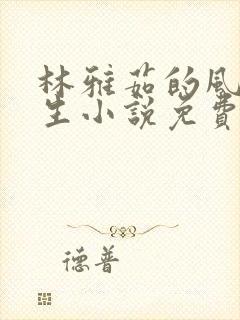 林雅茹的风
生小說免費
德普